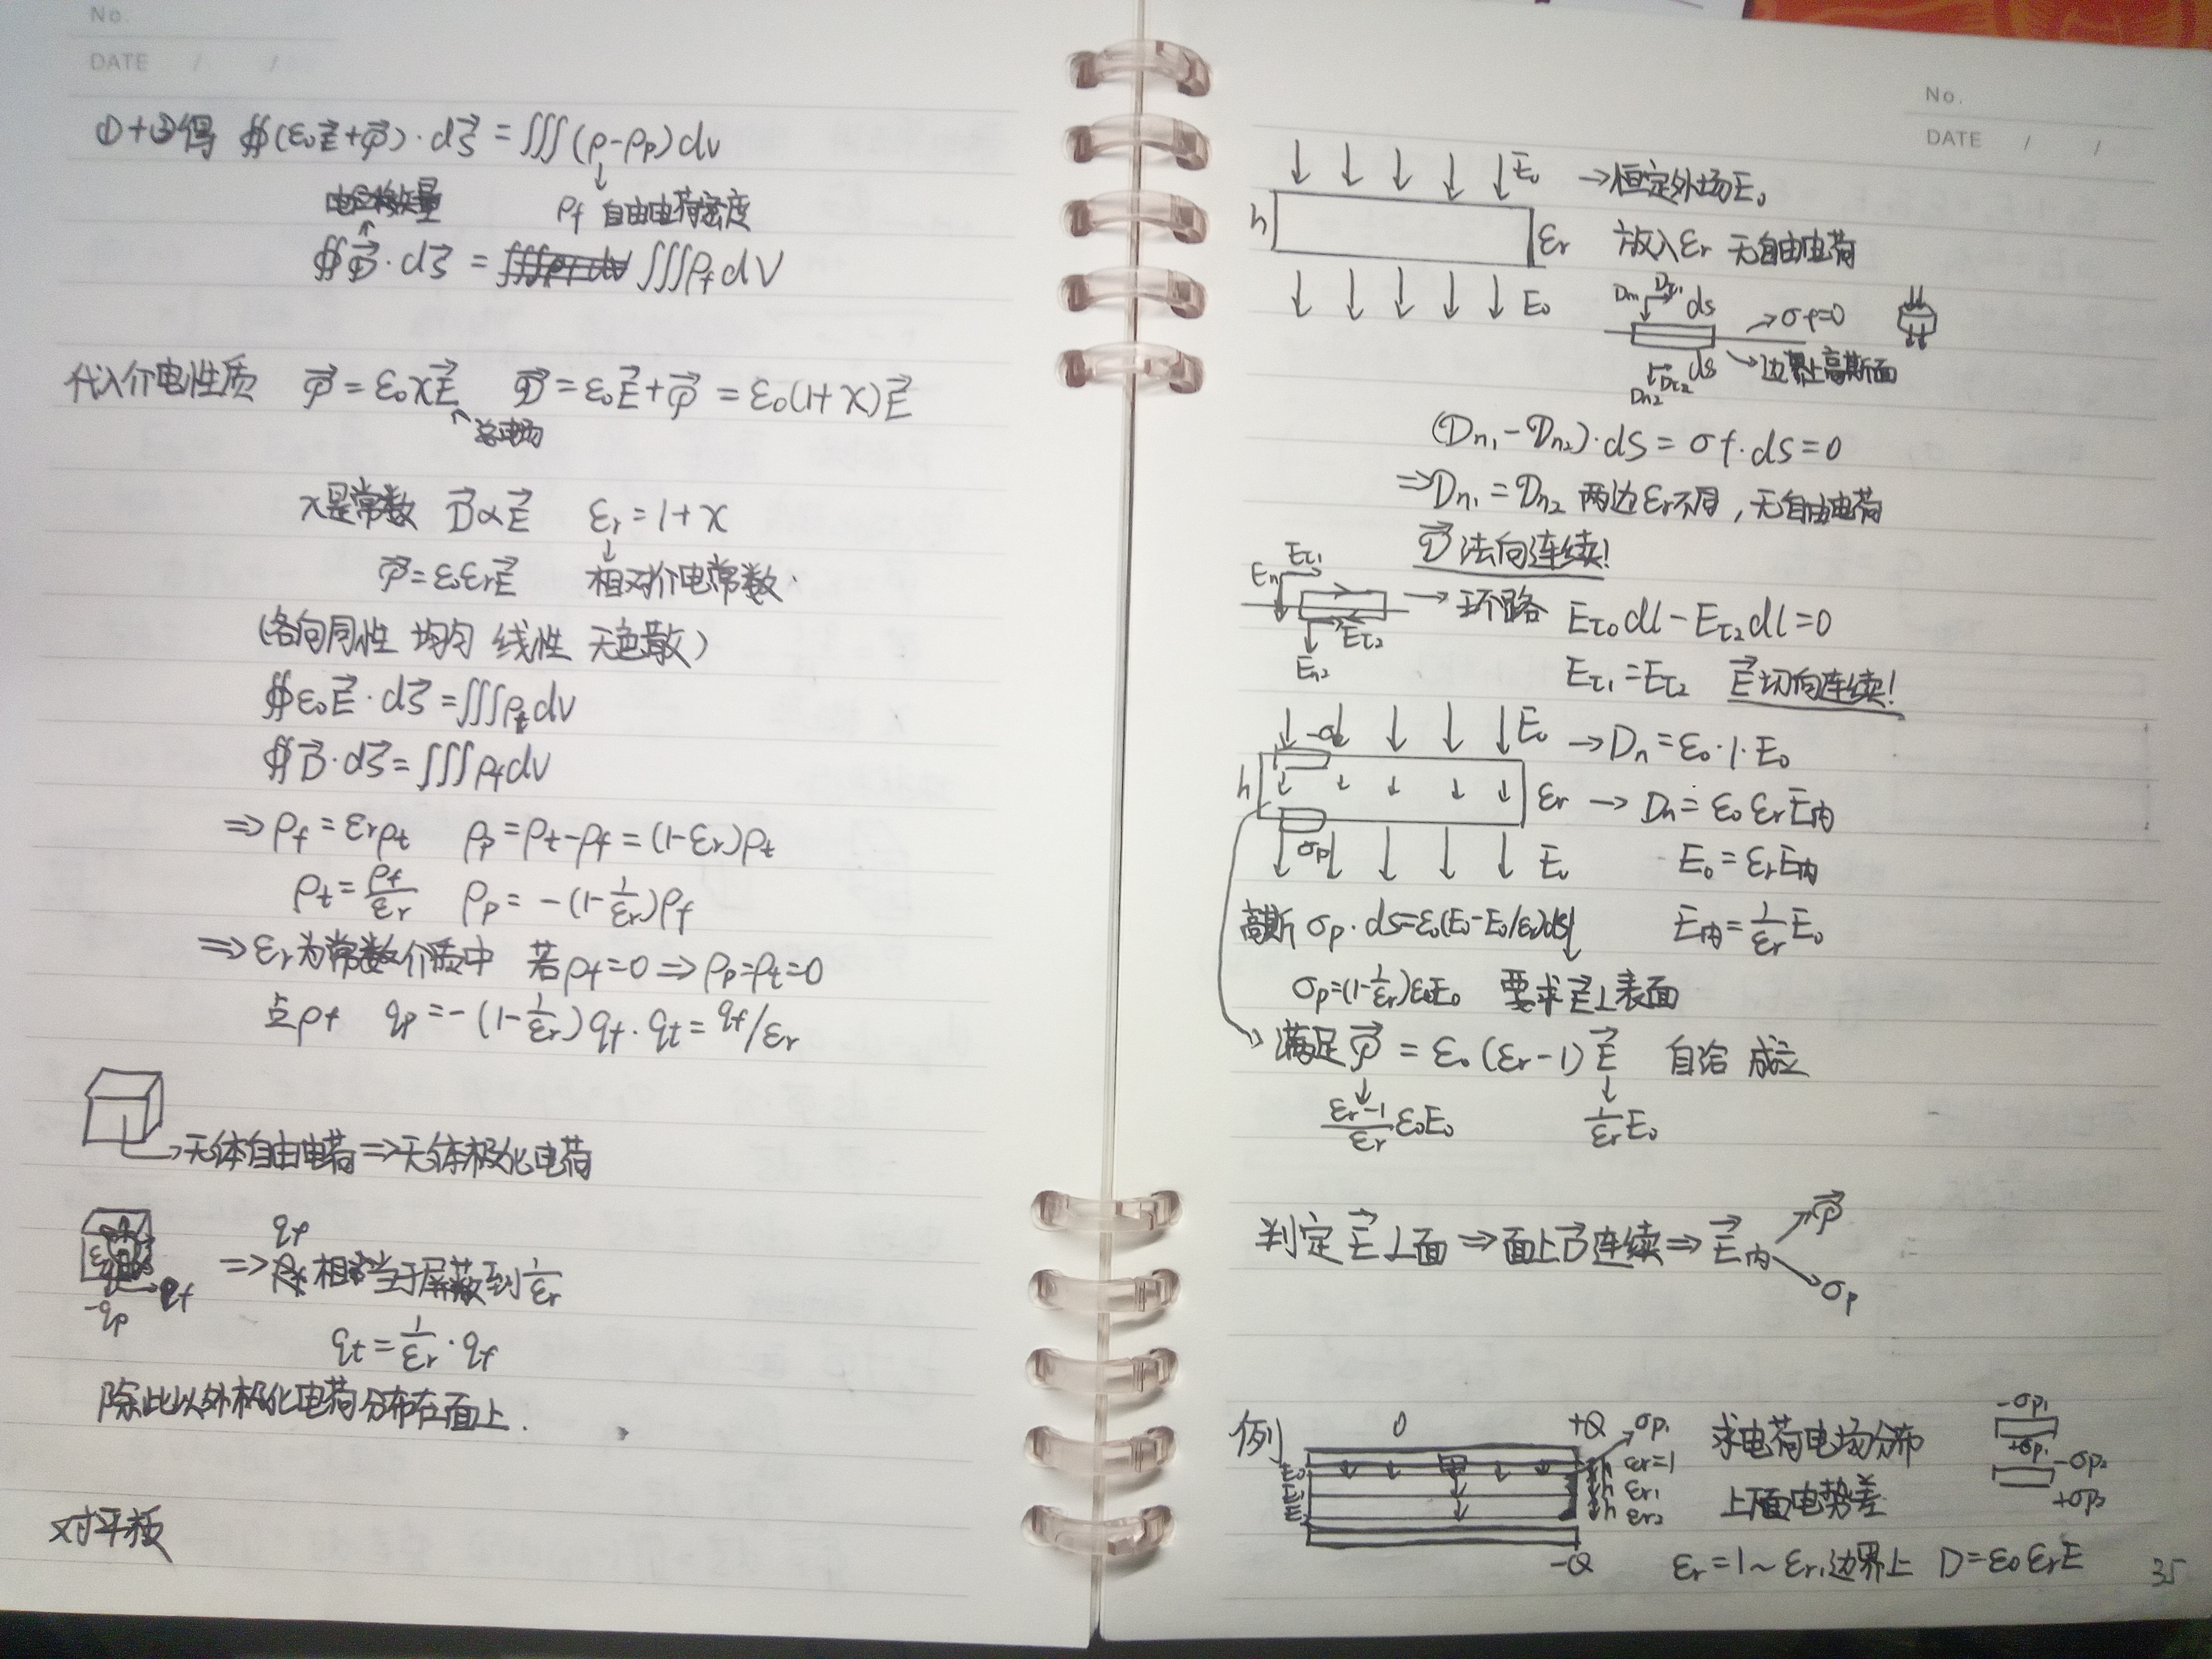 No.
DATE / /
①+②得 ∯(ε₀E⃗+P⃗)·dS⃗ = ∭(ρ-ρp)dv
ρf 自由电荷密度
∯D⃗·dS⃗ = ∭ρf dV
代入介电性质 P⃗=ε₀χE⃗ D⃗=ε₀E⃗+P⃗=ε₀(1+χ)E⃗
总电场
χ是常数 D⃗∝E⃗ εr=1+χ
P⃗=ε₀εrE⃗ 相对介电常数.
(各向同性 均匀 线性 无色散)
∯ε₀E⃗·dS⃗=∭ρt dv
∯D⃗·dS⃗=∭ρf dv
⇒ρf=εrρt ρp=ρt-ρf=(1-εr)ρt
ρt=ρf/εr ρp=-(1-1/εr)ρf
⇒εr为常数介质中 若ρf=0⇒ρp=ρt=0
点ρf qp=-(1-1/εr)qf. qt=qf/εr
→无体自由电荷⇒无体极化电荷
qf
⇒相当于屏蔽到1/εr
-qp qf
qt=1/εr·qf
除此以外极化电荷分布在面上.
对平板
No.
DATE / /
E₀ →恒定外场E₀
h εr 放入εr 无自由电荷
E₀
Dn₁ Dτ₁ ds →σf=0
ds →边界上高斯面
Dn₂ Dτ₂
(Dn₁-Dn₂)·dS=σf·dS=0
⇒Dn₁=Dn₂ 两边εr不同,无自由电荷
D⃗法向连续!
En Eτ₁
→环路 Eτ₀dl-Eτ₂dl=0
Eτ₂
En₂
Eτ₁=Eτ₂ E⃗切向连续!
E₀ →Dn=ε₀·1·E₀
h εr →Dn=ε₀εrE内
σp E₀ E₀=εrE内
高斯 σp·ds=ε₀(E₀-E₀/εr)ds E内=1/εr E₀
σp=(1-1/εr)ε₀E₀ 要求E⃗⊥表面
→满足P⃗=ε₀(εr-1)E⃗ 自洽 成立
(εr-1)/εr ε₀E₀ 1/εr E₀
判定E⃗⊥面⇒面上D⃗连续⇒E⃗内 P⃗
σp
例 0 +Q σp₁ 求电荷电场分布 -σp₁
E₀ h εr=1 +σp₁
E₁ h εr₁ 上下面电势差 -σp₂
E₂ h εr₂ +σp₂
-Q εr=1~εr₁边界上 D=ε₀εrE
35